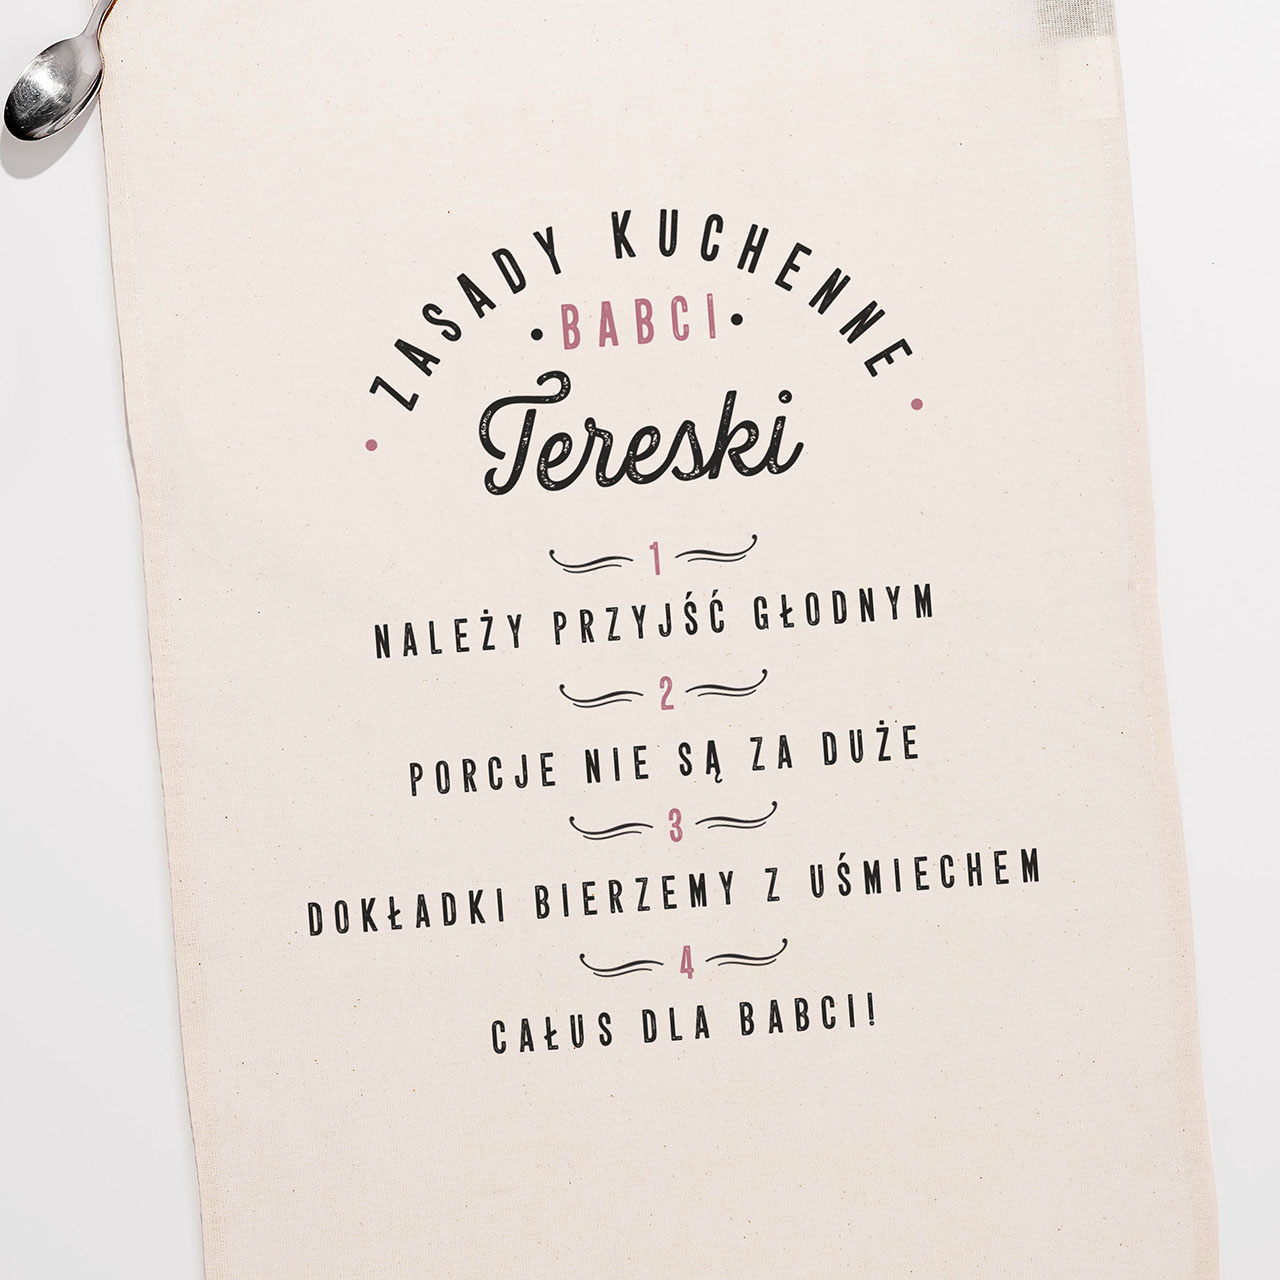 ZASADY KUCHENNE
•BABCI•
Tereski
1
NALEŻY PRZYJŚĆ GŁODNYM
2
PORCJE NIE SĄ ZA DUŻE
3
DOKŁADKI BIERZEMY Z UŚMIECHEM
4
CAŁUS DLA BABCI!